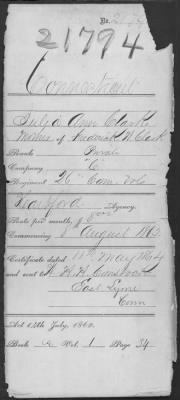 No.
21794
Connecticut
Julia Ann Clark
Mother of Frederick W. Clark
Rank Private
Company "C"
Regiment 26" Conn. Vols
Hartford Agency.
Rate per month, $ 8.00
Commencing 8" August 1863
Certificate dated 11th May 1864
and sent to H. H.
East Lyme
Conn
Act 14th July, 1862.
Book A Vol. 1 Page 34